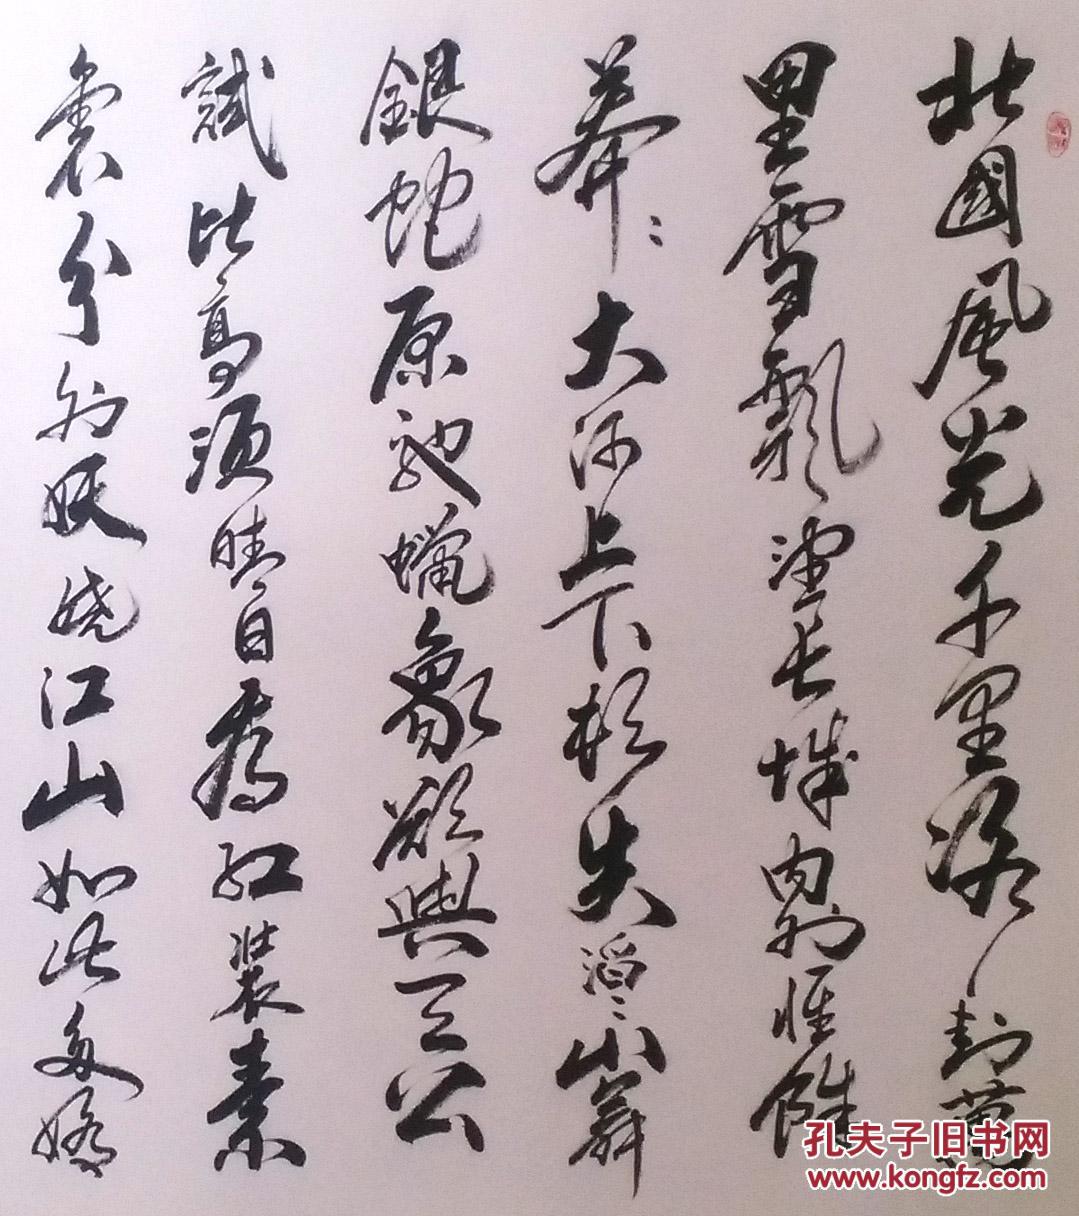 北國風光千里冰封萬
里雪飄望長城內外惟餘
莽〻大河上下頓失滔〻山舞
銀蛇原馳蠟象欲與天公
試比高須晴日看紅裝素
裹分外妖嬈江山如此多嬌
孔夫子旧书网
www.kongfz.com